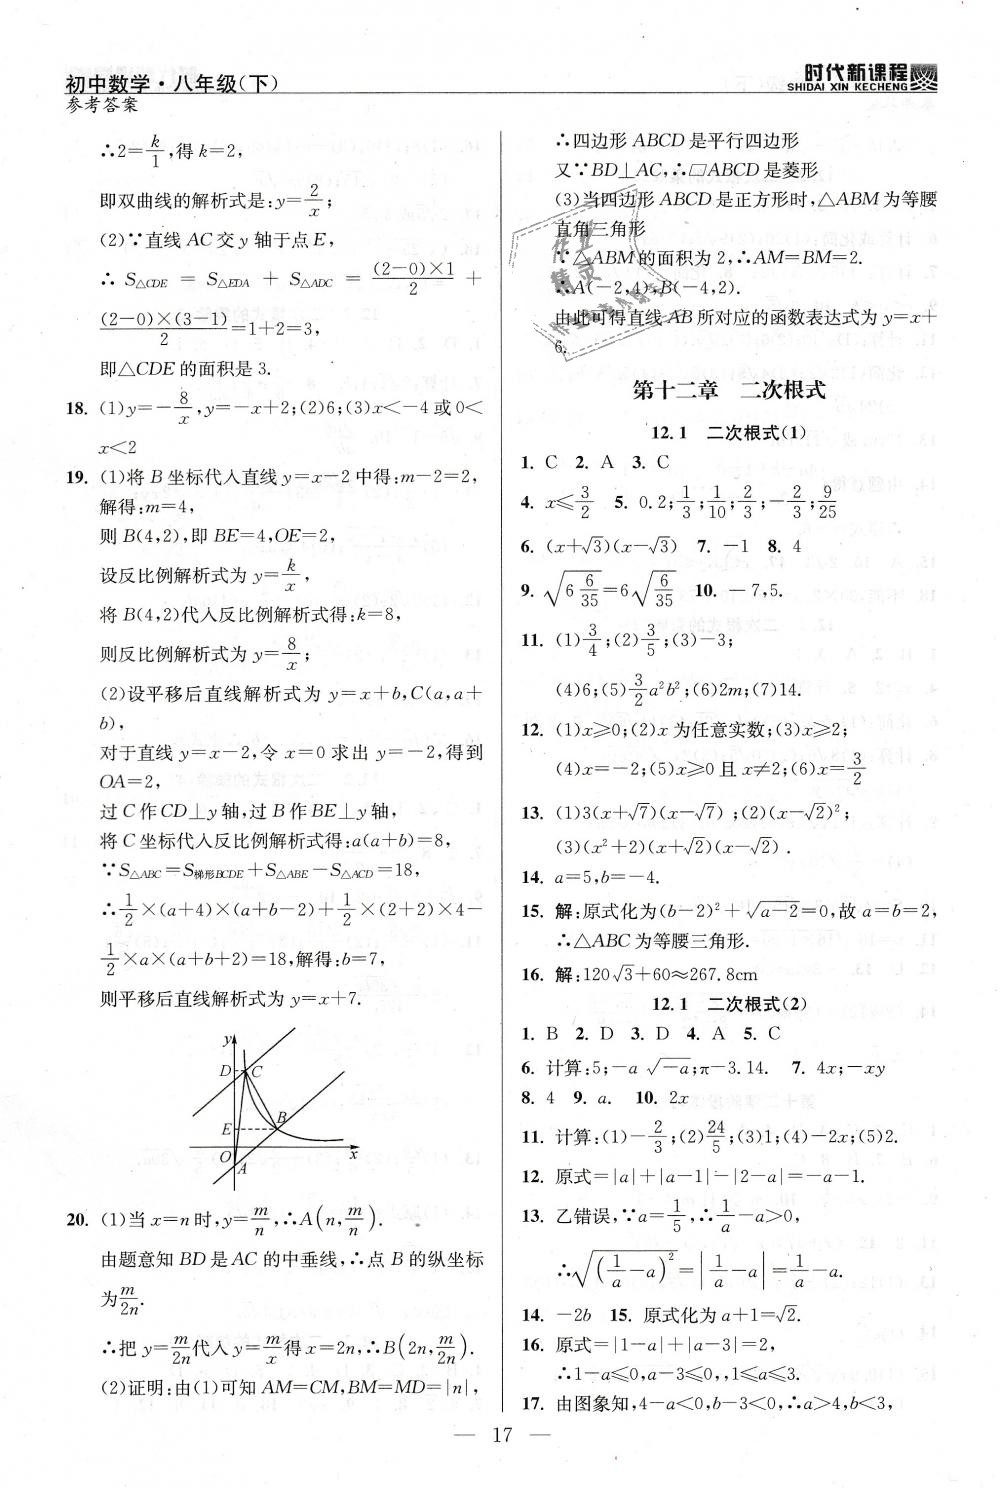 初中数学·八年级(下)
参考答案
时代新课程
SHIDAI XIN KECHENG
∴2=k/1,得k=2,
即双曲线的解析式是:y=2/x;
(2)∵直线AC交y轴于点E,
∴ S△CDE = S△EDA + S△ADC = (2-0)×1/2 +
(2-0)×(3-1)/2=1+2=3,
即△CDE的面积是3.
18. (1)y=-8/x,y=-x+2;(2)6;(3)x<-4或0<
x<2
19. (1)将B坐标代入直线y=x-2中得:m-2=2,
解得:m=4,
则B(4,2),即BE=4,OE=2,
设反比例解析式为y=k/x,
将B(4,2)代入反比例解析式得:k=8,
则反比例解析式为y=8/x;
(2)设平移后直线解析式为y=x+b,C(a,a+
b),
对于直线y=x-2,令x=0求出y=-2,得到
OA=2,
过C作CD⊥y轴,过B作BE⊥y轴,
将C坐标代入反比例解析式得:a(a+b)=8,
∵S△ABC=S梯形BCDE+S△ABE-S△ACD=18,
∴1/2×(a+4)×(a+b-2)+1/2×(2+2)×4-
1/2×a×(a+b+2)=18,解得:b=7,
则平移后直线解析式为y=x+7.
y
D C
E B
O x
A
20. (1)当x=n时,y=m/n,∴A(n,m/n).
由题意知BD是AC的中垂线,∴点B的纵坐标
为m/2n.
∴把y=m/2n代入y=m/x得x=2n,∴B(2n,m/2n).
(2)证明:由(1)可知AM=CM,BM=MD=|n|,
∴四边形ABCD是平行四边形
又∵BD⊥AC,∴□ABCD是菱形
(3)当四边形ABCD是正方形时,△ABM为等腰
直角三角形
∵△ABM的面积为2,∴AM=BM=2.
∴A(-2,4),B(-4,2).
由此可得直线AB所对应的函数表达式为y=x+
6.
第十二章 二次根式
12.1 二次根式(1)
1. C 2. A 3. C
4. x≤3/2 5. 0.2;1/3;1/10;2/3;-2/3;9/25
6. (x+√3)(x-√3) 7. -1 8. 4
9. √(6 6/35)=6√(6/35) 10. -7,5.
11. (1)3/4;(2)3/5;(3)-3;
(4)6;(5)3/2a²b²;(6)2m;(7)14.
12. (1)x≥0;(2)x为任意实数;(3)x≥2;
(4)x=-2;(5)x≥0且x≠2;(6)x=3/2
13. (1)3(x+√7)(x-√7) ;(2)(x-√2)²;
(3)(x²+2)(x+√2)(x-√2) .
14. a=5,b=-4.
15. 解:原式化为(b-2)²+√(a-2)=0,故a=b=2,
∴△ABC为等腰三角形.
16. 解:120√3+60≈267.8cm
12.1 二次根式(2)
1. B 2. D 3. D 4. A 5. C
6. 计算:5;-a√(-a);π-3.14. 7. 4x;-xy
8. 4 9. a. 10. 2x
11. 计算:(1)-2/3;(2)24/5;(3)1;(4)-2x;(5)2.
12. 原式=|a|+|a-1|-|2-a|=-a-1.
13. 乙错误,∵a=1/5,∴1/a-a>0,
∴√((1/a-a)²)=|1/a-a|=1/a-a.
14. -2b 15. 原式化为a+1=√2.
16. 原式=|1-a|+|a-3|=2,
∴1-a≤0,a-3≤0,,1≤a≤3.
17. 由图象知,4-a<0,b-3<0,∴a>4,b<3,
— 17 —
作业
精灵